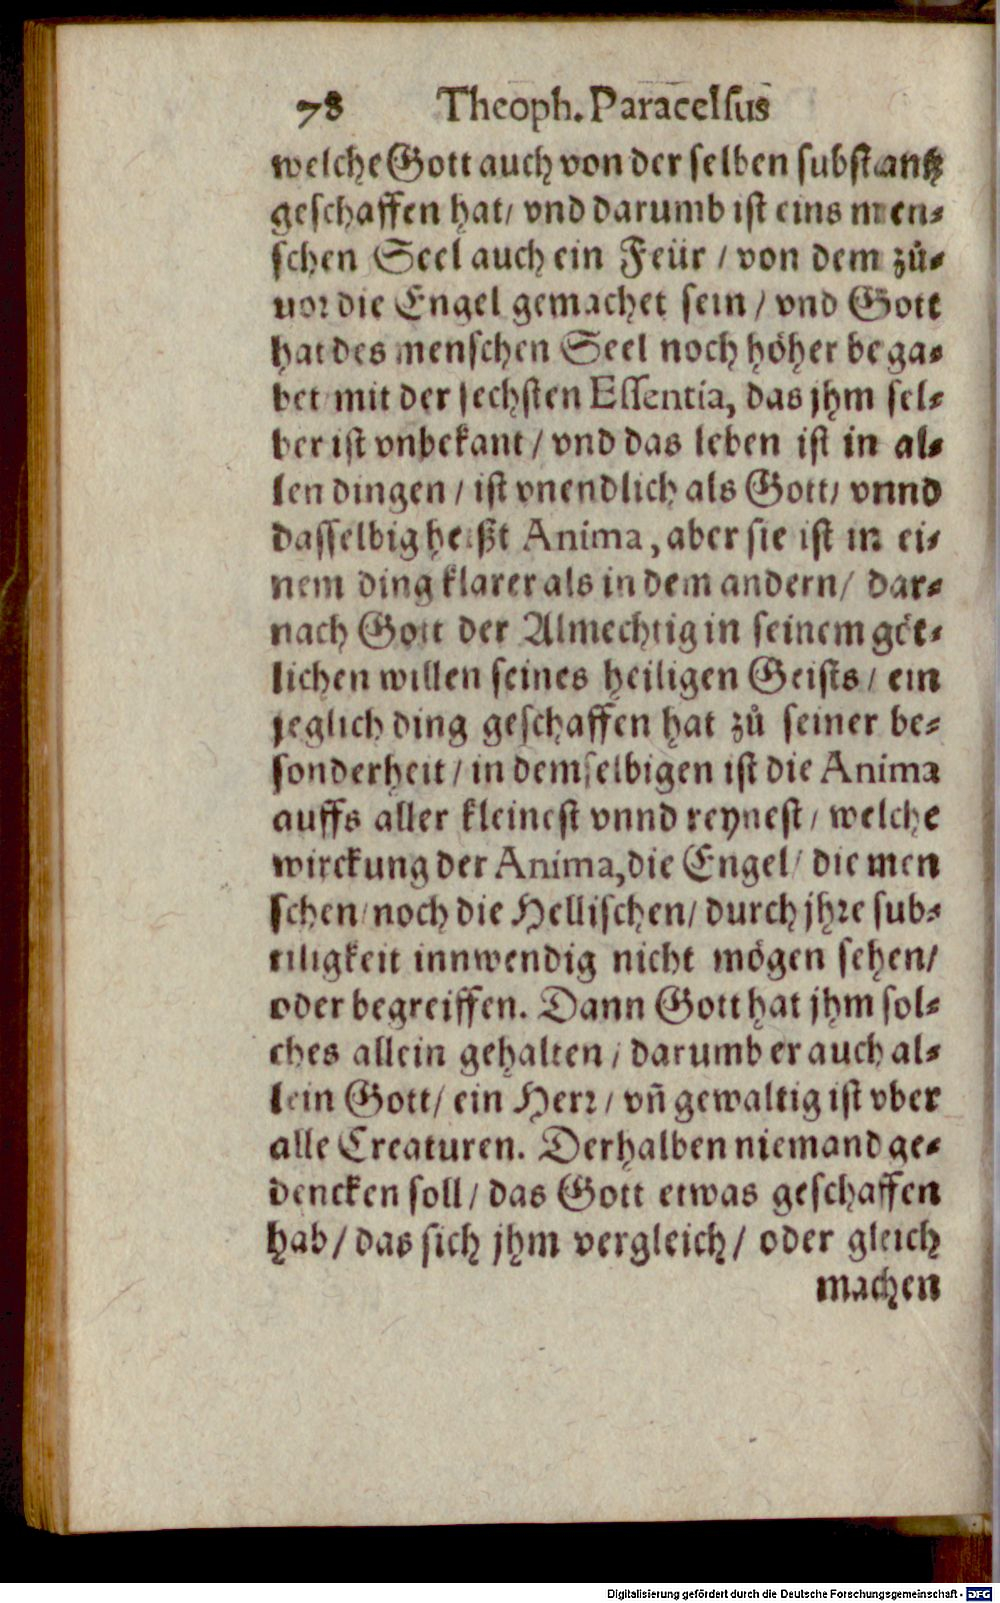 78 Theoph. Paracelsus
welche Gott auch von der selben substantz
geschaffen hat/ vnd darumb ist eins men-
schen Seel auch ein Feür / von dem zů-
uor die Engel gemachet sein / vnd Gott
hat des menschen Seel noch höher bega-
bet mit der sechsten Essentia, das jhm sel-
ber ist vnbekant / vnd das leben ist in al-
len dingen / ist vnendlich als Gott/ vnnd
dasselbig heißt Anima, aber sie ist in ei-
nem ding klarer als in dem andern/ dar-
nach Gott der Almechtig in seinem göt-
lichen willen seines heiligen Geists / ein
jeglich ding geschaffen hat zů seiner be-
sonderheit / in demselbigen ist die Anima
auffs aller kleinest vnnd reynest / welche
wirckung der Anima, die Engel/ die men
schen/ noch die Hellischen/ durch jhre sub-
tiligkeit innwendig nicht mögen sehen/
oder begreiffen. Dann Gott hat jhm sol-
ches allein gehalten / darumb er auch al-
lein Gott/ ein Herr / vñ gewaltig ist vber
alle Creaturen. Derhalben niemand ge-
dencken soll / das Gott etwas geschaffen
hab / das sich jhm vergleich / oder gleich
machen
Digitalisierung gefördert durch die Deutsche Forschungsgemeinschaft - DFG